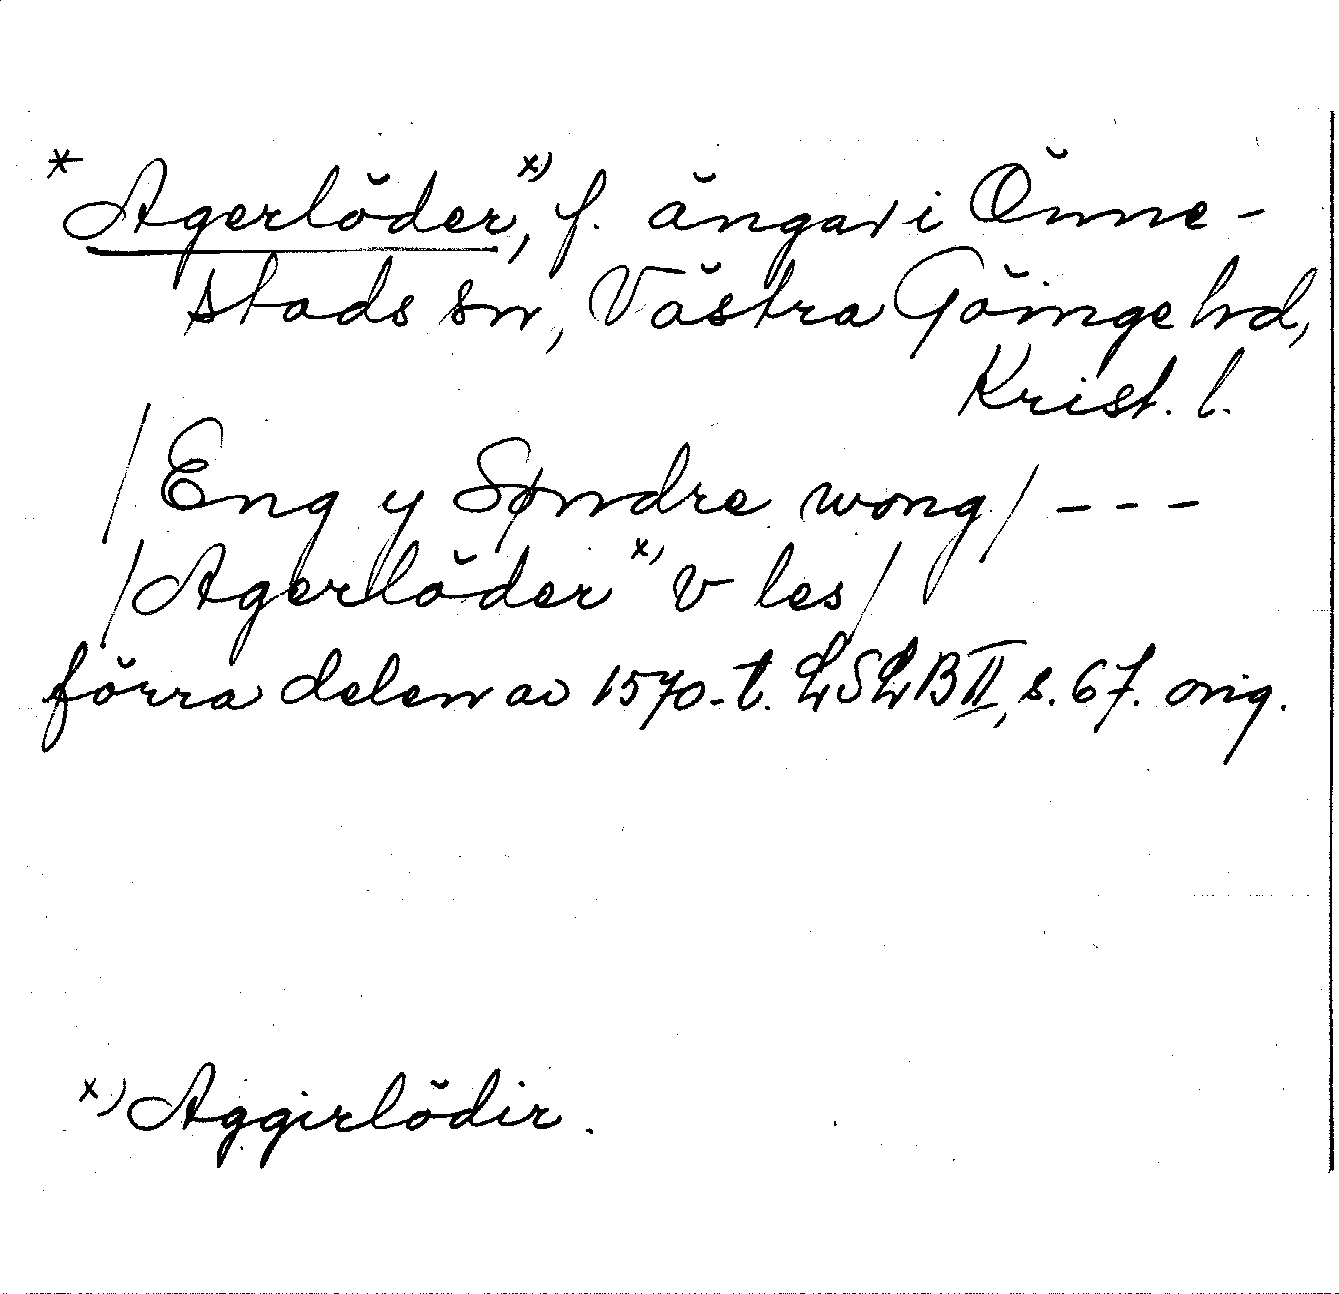 * Agerlöder, x) f. ängar i Önne-
stads sn, Västra Göinge hd,
Krist. l.
/Eng y Søndre wong/ - - -
/Agerlöder x) v les/
förra delen av 1570-t. LSLB II, s. 67. orig.
x) Aggirlödir.